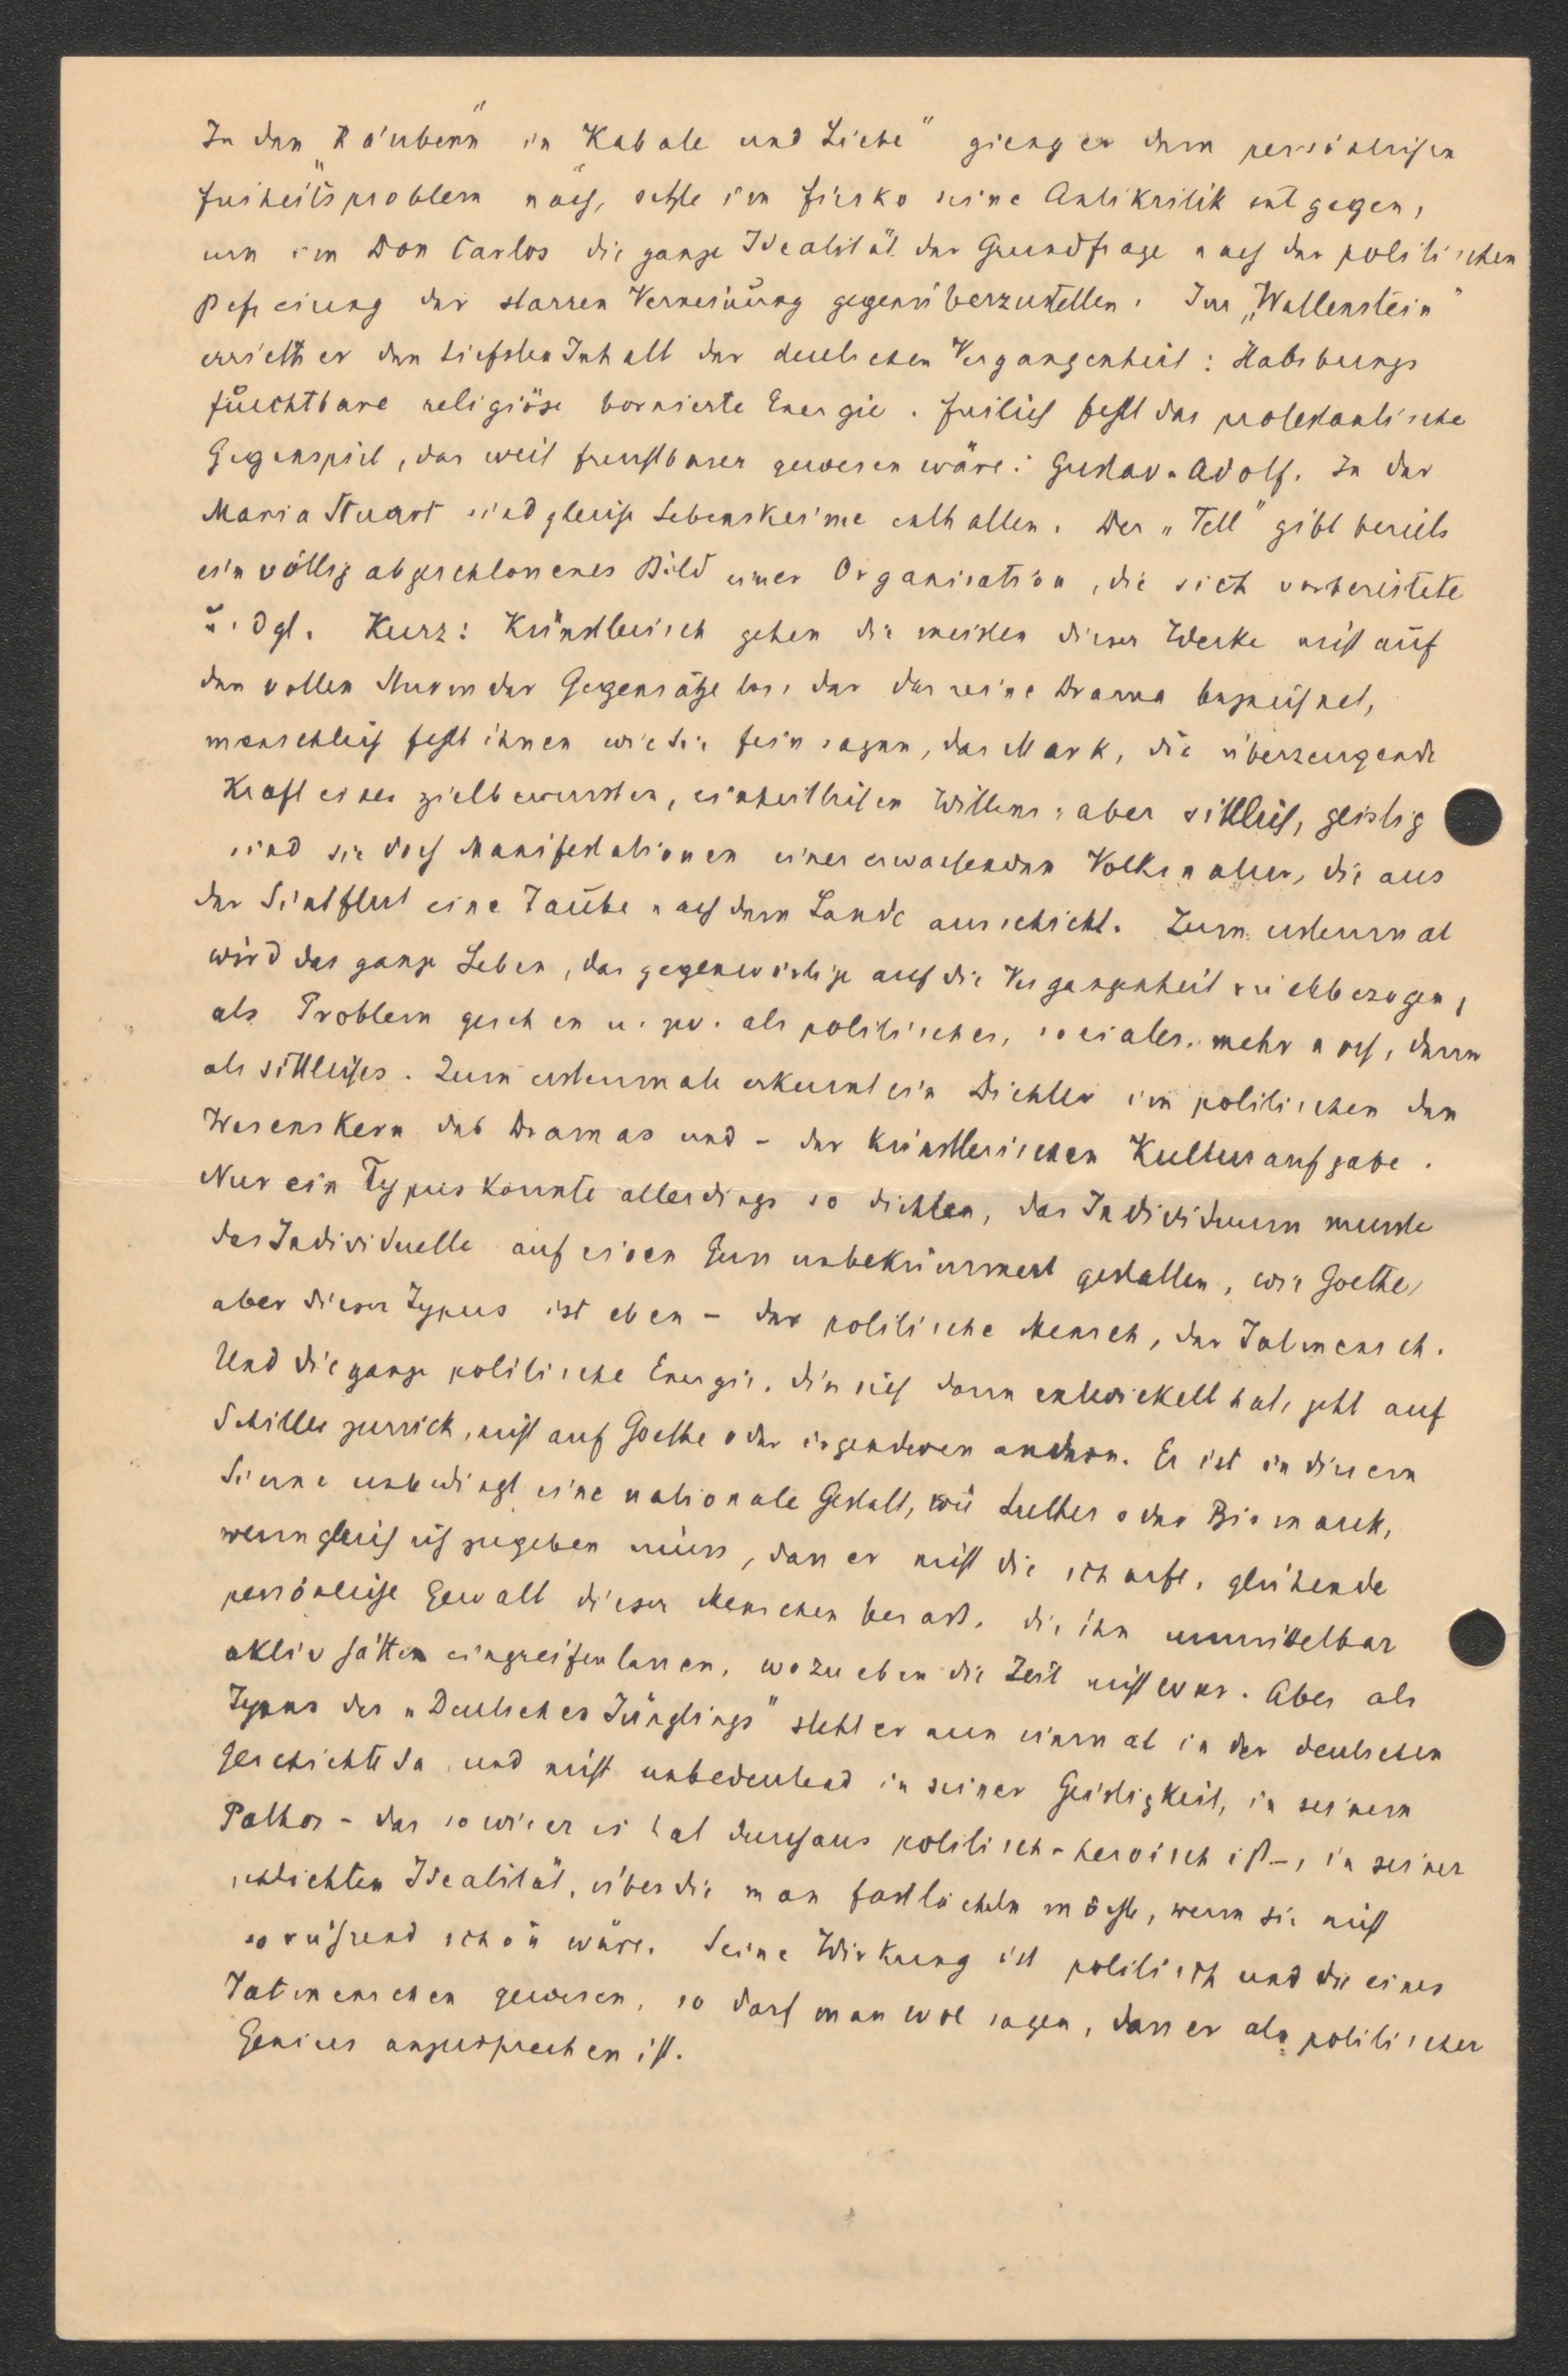 In den „Räubern“ in „Kabale und Liebe“ gieng er dem persönlichen
Freiheitsproblem nach, setzte im Fiesko seine Antikritik entgegen,
um im Don Carlos die ganze Idealität der Grundfrage nach der politischen
Befreiung der starren Verneinung gegenüberzustellen. Im „Wallenstein“
errieth er den tiefsten Inhalt der deutschen Vergangenheit: Habsburgs
furchtbare religiöse bornierte Energie. Freilich fehlt das protestantische
Gegenspiel, das weit fruchtbarer gewesen wäre: Gustav-Adolf. In der
Maria Stuart sind gleiche Lebenskeime enthalten. Der „Tell“ gibt bereits
ein völlig abgeschlossenes Bild einer Organisation, die sich vorbereitete
u. dgl. Kurz: Künstlerisch gehen die meisten dieser Werke nicht auf
den vollen Sturm der Gegensätze los, der das reine Drama bezeichnet,
menschlich fehlt ihnen wie Sie fein sagen, das Mark, die überzeugende
Kraft eines zielbewussten, einheitlichen Willens; aber sittlich, geistig
sind sie doch Manifestationen einer erwachenden Volksnatur, die aus
der Sintflut eine Taube nach dem Lande ausschickt. Zum erstenmal
wird das ganze Leben, das gegenwärtige auf die Vergangenheit rückbezogen,
als Problem gesehen u. zw. als politisches, sociales, mehr noch, denn
als sittliches. Zum erstenmale erkennt ein Dichter im politischen den
Wesenskern des Dramas und – der künstlerischen Kulturaufgabe.
Nur ein Typus konnte allerdings so dichten, das Individuum musste
das Individuelle auf einen unbekümmert gestalten, wie Goethe,
aber dieser Typus ist eben – der politische Mensch, der Tatmensch.
Und die ganze politische Energie, die sich dann entwickelt hat, geht auf
Schiller zurück, nicht auf Goethe oder irgendeinen andren. Er ist in diesem
Sinne unbedingt eine nationale Gestalt, wie Luther oder Bismarck,
wenngleich ich zugeben muss, dass er nicht die scharfe, glühende
persönliche Gewalt dieser Menschen besass, die ihn unmittelbar
aktiv hätten eingreifen lassen, wozu eben die Zeit nicht war. Aber als
Typus des „Deutschen Jünglings“ steht er nun einmal in der deutschen
Geschichte da und nicht unbedeutend in seiner Geistigkeit, in seinem
Pathos – das so wie er es hat durchaus politisch-heroisch ist –, in seiner
schlichten Idealität, über die man fast lächeln möchte, wenn sie nicht
so rührend schön wäre. Seine Wirkung ist politisch und die eines
Tatmenschen gewesen, so darf man wol sagen, dass er als politischer
Genius anzusprechen ist.